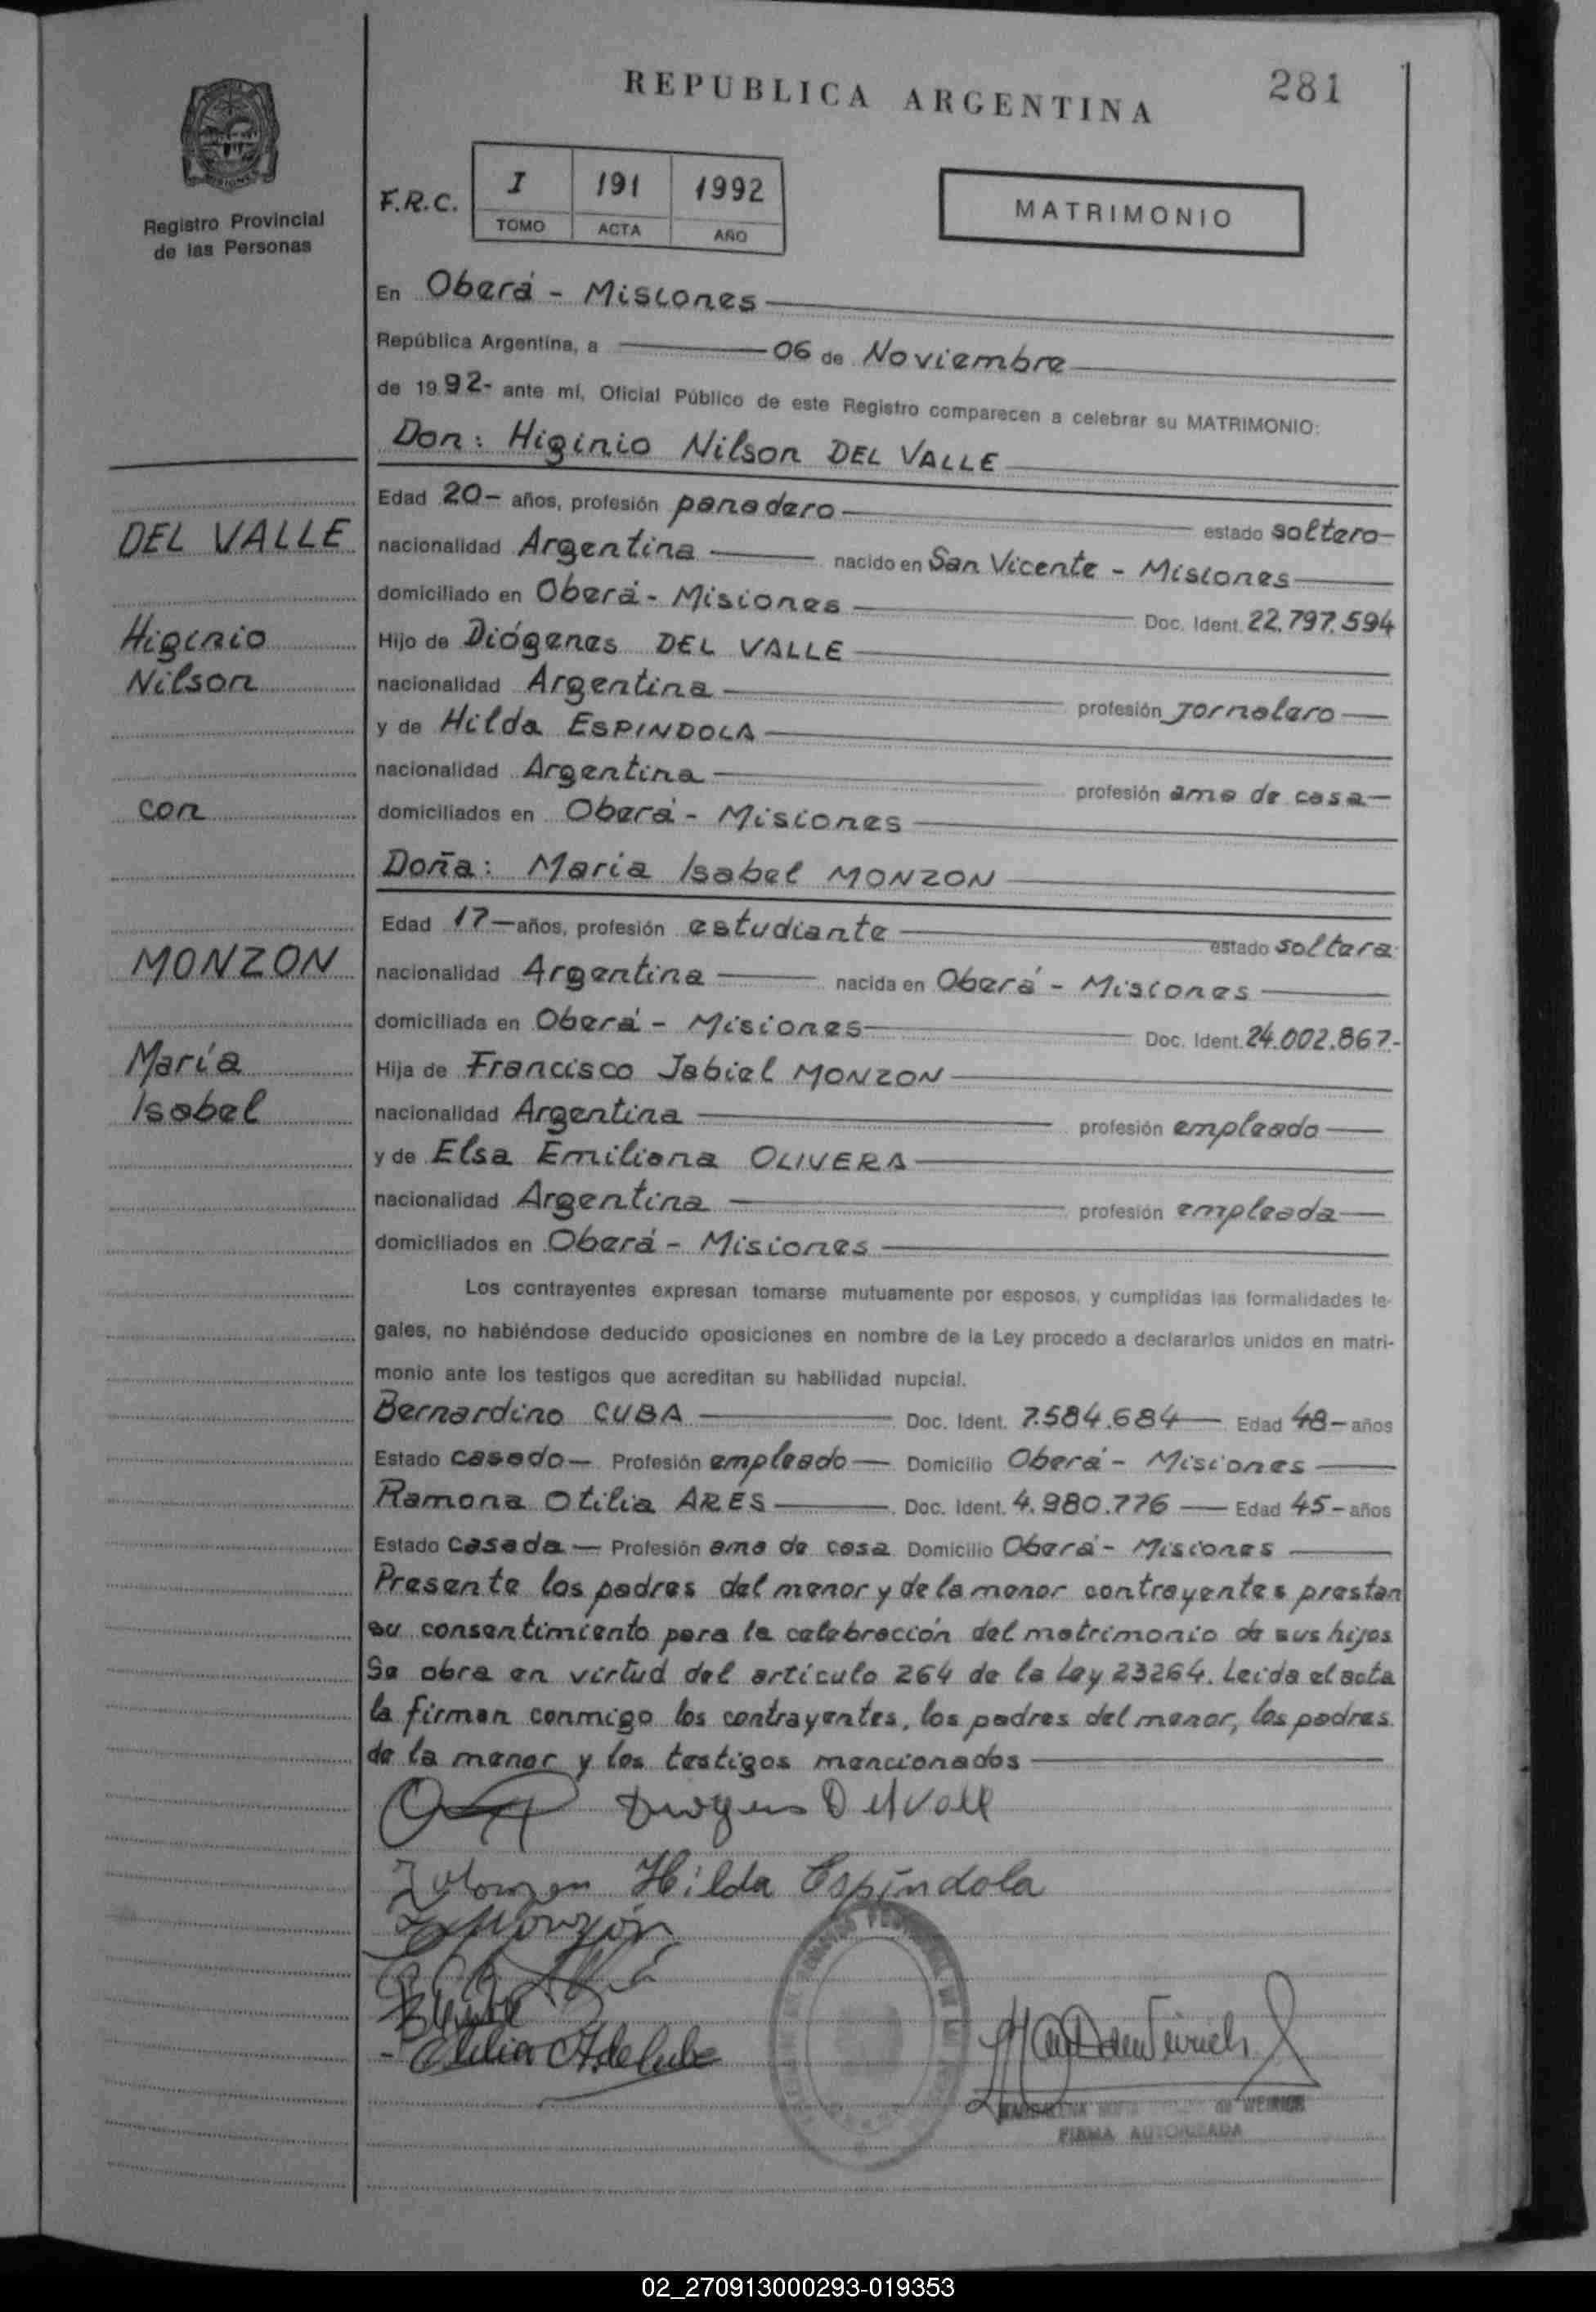 REPUBLICA ARGENTINA
281
Registro Provincial
de las Personas
F.R.C.
I 191 1992
TOMO ACTA AÑO
MATRIMONIO
En Oberá - Misiones
República Argentina, a 06 de Noviembre
de 1992- ante mí, Oficial Público de este Registro comparecen a celebrar su MATRIMONIO:
Don: Higinio Nilson DEL VALLE
Edad 20- años, profesión panadero estado soltero-
DEL VALLE
nacionalidad Argentina nacido en San Vicente - Misiones
domiciliado en Oberá - Misiones Doc. Ident. 22.797.594
Higinio
Hijo de Diógenes DEL VALLE
Nilson
nacionalidad Argentina profesión Jornalero
y de Hilda ESPINDOLA
nacionalidad Argentina profesión ama de casa
con
domiciliados en Oberá - Misiones
Doña: Maria Isabel MONZON
Edad 17 años, profesión estudiante estado soltera
MONZON
nacionalidad Argentina nacida en Oberá - Misiones
domiciliada en Oberá - Misiones Doc. Ident. 24.002.867-
María
Hija de Francisco Jabiel MONZON
Isabel
nacionalidad Argentina profesión empleado
y de Elsa Emiliana OLIVERA
nacionalidad Argentina profesión empleada
domiciliados en Oberá - Misiones
Los contrayentes expresan tomarse mutuamente por esposos, y cumplidas las formalidades le-
gales, no habiéndose deducido oposiciones en nombre de la Ley procedo a declararlos unidos en matri-
monio ante los testigos que acreditan su habilidad nupcial.
Bernardino CUBA Doc. Ident. 7.584.684 Edad 48- años
Estado casado Profesión empleado Domicilio Oberá - Misiones
Ramona Otilia ARES Doc. Ident. 4.980.776 Edad 45- años
Estado casada Profesión ama de casa Domicilio Oberá - Misiones
Presente los padres del menor y de la menor contrayentes prestan
su consentimiento para la celebración del matrimonio de sus hijos
Se obra en virtud del artículo 264 de la Ley 23264. Leida el acta
la firman conmigo los contrayentes, los padres del menor, los padres
de la menor y los testigos mencionados
Hilda Espíndola
FIRMA AUTORIZADA
02_270913000293-019353